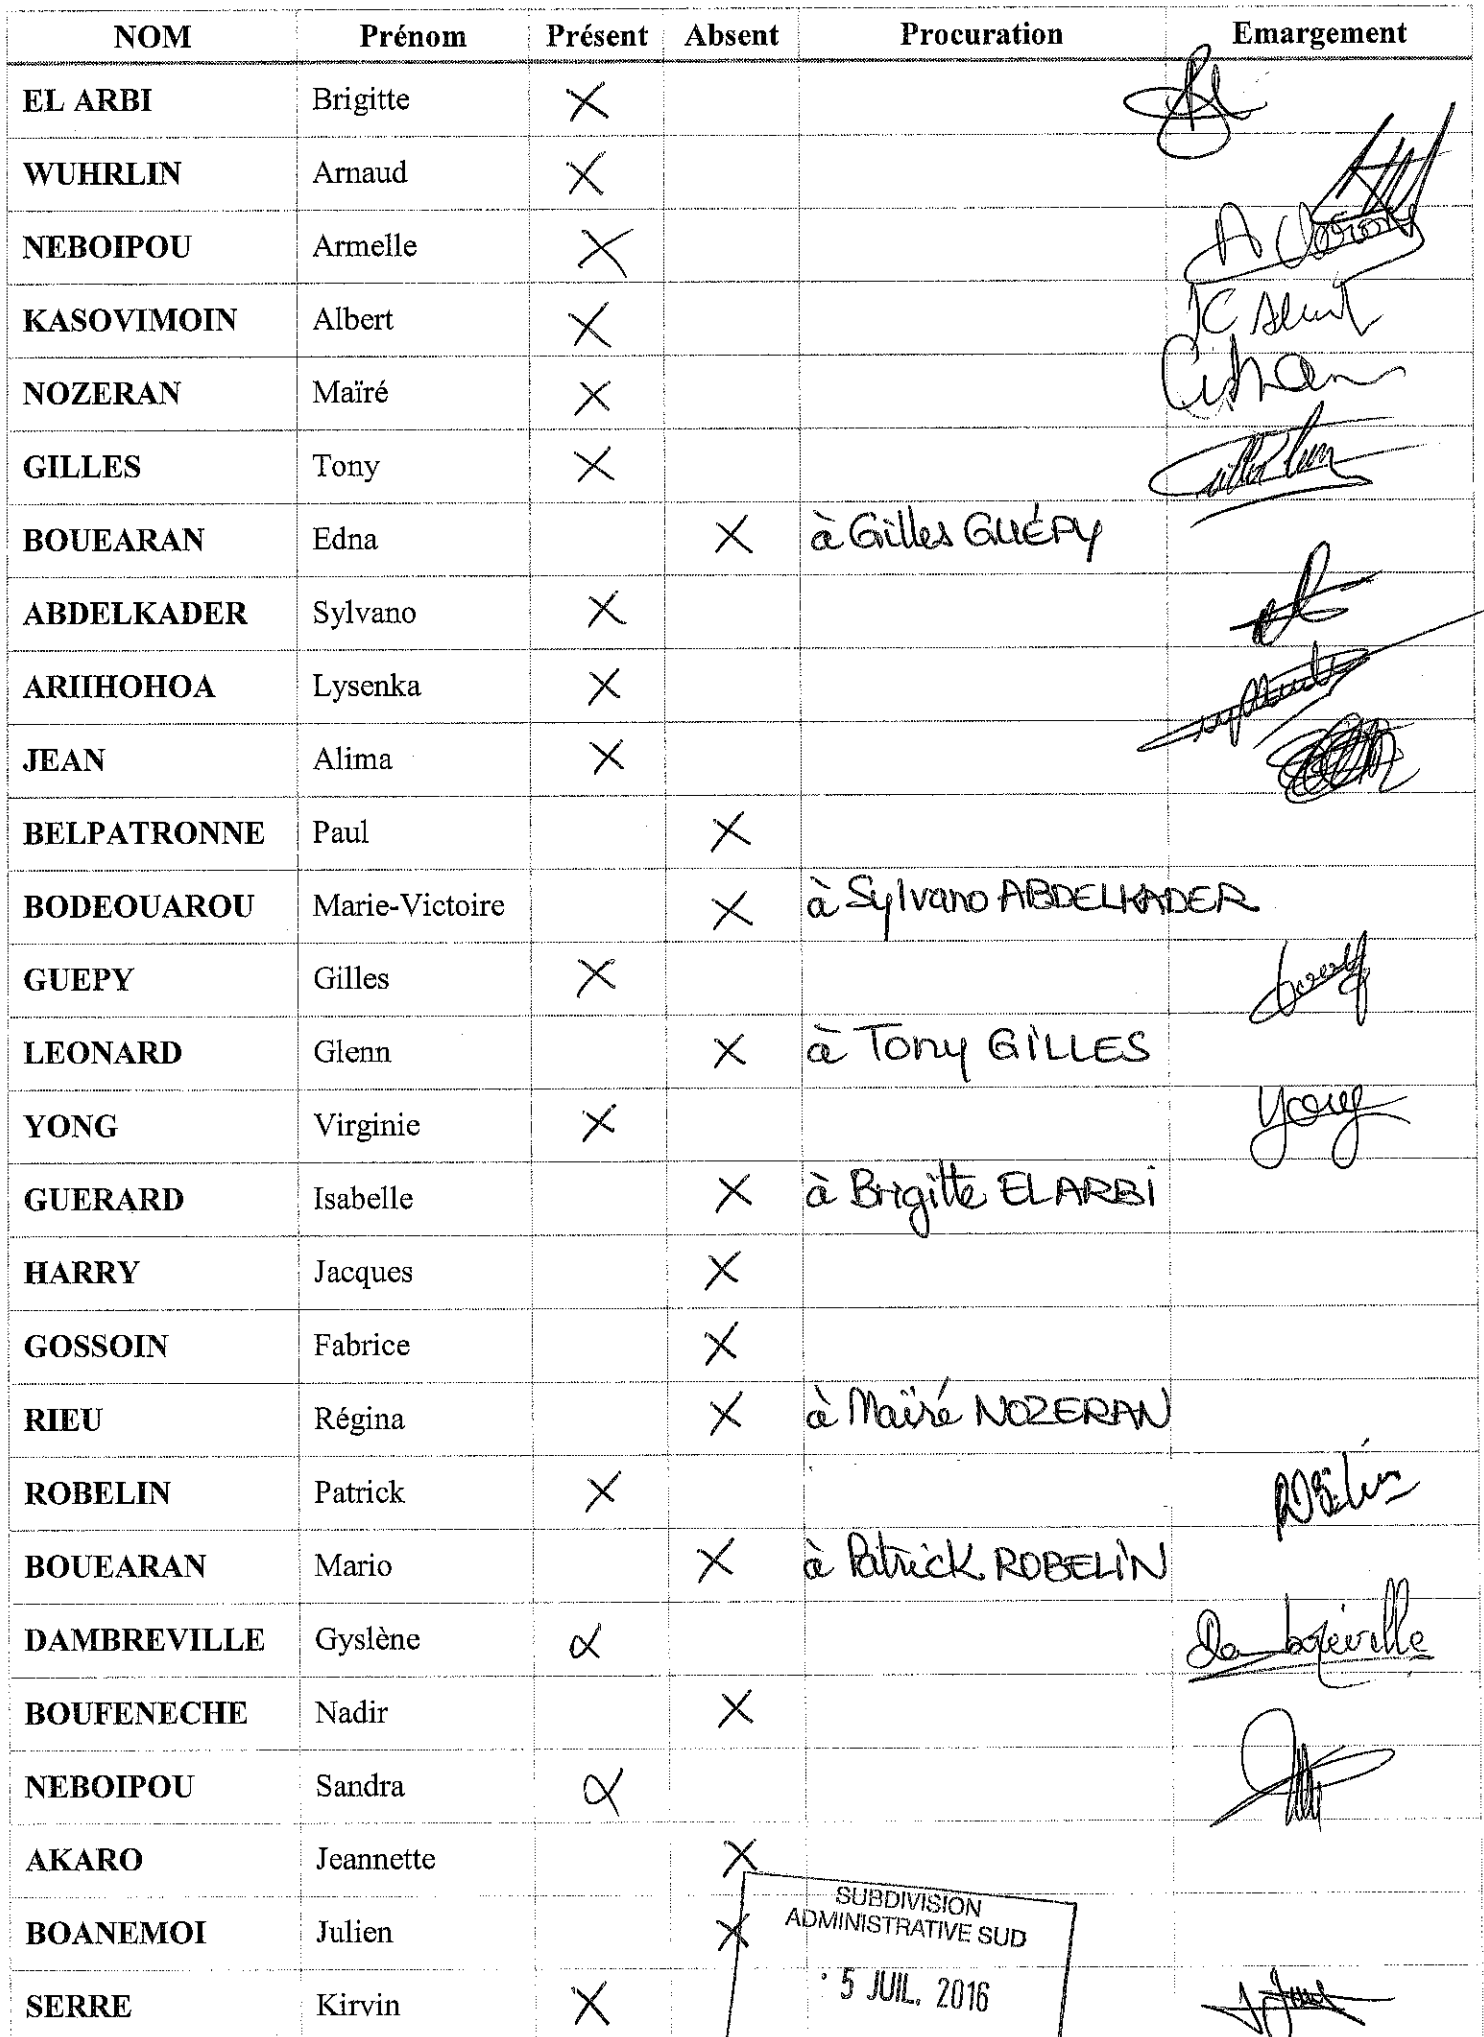 NOM Prénom Présent Absent Procuration Emargement
EL ARBI Brigitte X
WUHRLIN Arnaud X
NEBOIPOU Armelle X
KASOVIMOIN Albert X
NOZERAN Maïré X
GILLES Tony X
BOUEARAN Edna X à Gilles GUÉPY
ABDELKADER Sylvano X
ARIIHOHOA Lysenka X
JEAN Alima X
BELPATRONNE Paul X
BODEOUAROU Marie-Victoire X à Sylvano ABDELKADER
GUEPY Gilles X
LEONARD Glenn X à Tony GILLES
YONG Virginie X Yong
GUERARD Isabelle X à Brigitte EL ARBI
HARRY Jacques X
GOSSOIN Fabrice X
RIEU Régina X à Maïré NOZERAN
ROBELIN Patrick X
BOUEARAN Mario X à Patrick ROBELIN
DAMBREVILLE Gyslène X Dambreville
BOUFENECHE Nadir X
NEBOIPOU Sandra X
AKARO Jeannette X
SUBDIVISION
ADMINISTRATIVE SUD
BOANEMOI Julien X
5 JUIL. 2016
SERRE Kirvin X